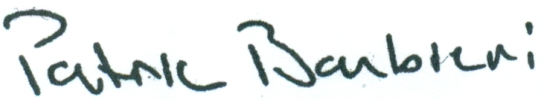 Patrik Barbieri